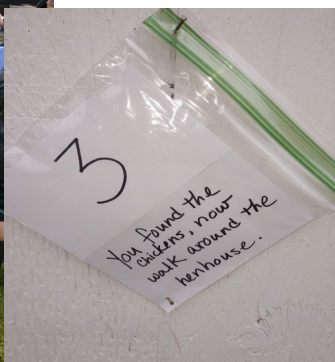 3
You found the
chickens, now
walk around the
henhouse.